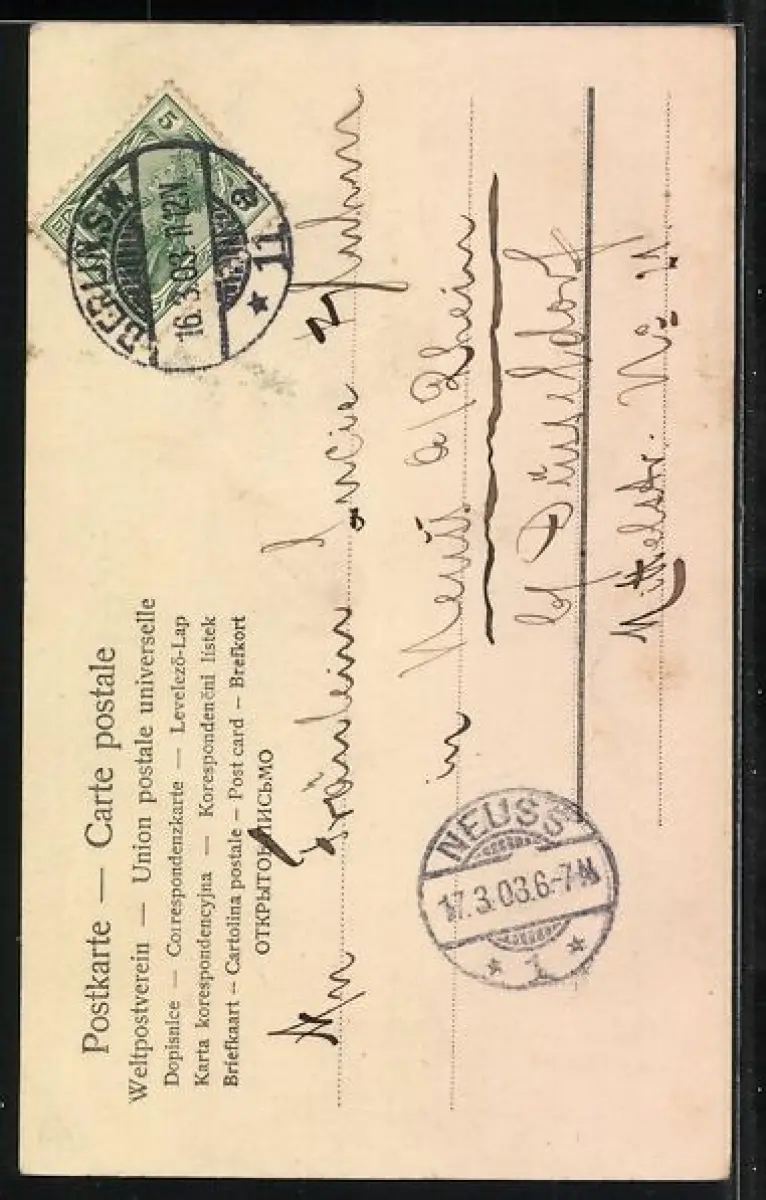 Postkarte — Carte postale
Weltpostverein — Union postale universelle
Dopisnice — Correspondenzkarte — Levelező-Lap
Karta korespondencyjna — Korespondenční lístek
Briefkaart — Cartolina postale — Post card — Brefkort
ОТКРЫТОЕ ПИСЬМО
5
BERLIN.S.W.
16.3.03.11-12N.
* 11 a
Fräulein Lucie
in Neuss a/Rhein
Düsseldorf
Mittelstr. No. 11
NEUSS
17.3.03.6-7.N
* 1 *